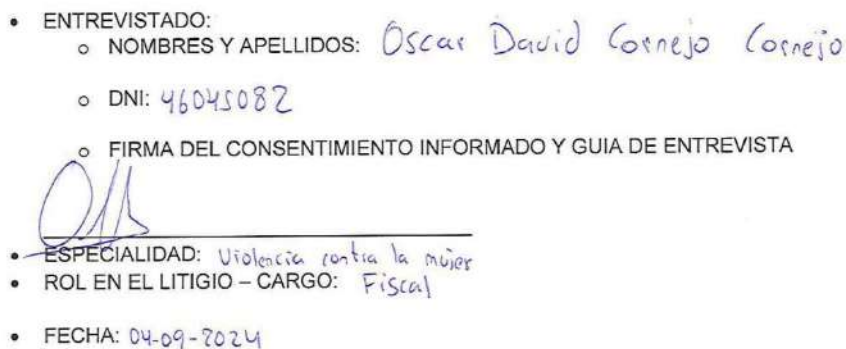 • ENTREVISTADO:
o NOMBRES Y APELLIDOS: Oscar David Cornejo Cornejo
o DNI: 46045082
o FIRMA DEL CONSENTIMIENTO INFORMADO Y GUIA DE ENTREVISTA
• ESPECIALIDAD: Violencia contra la mujer
• ROL EN EL LITIGIO – CARGO: Fiscal
• FECHA: 04-09-2024